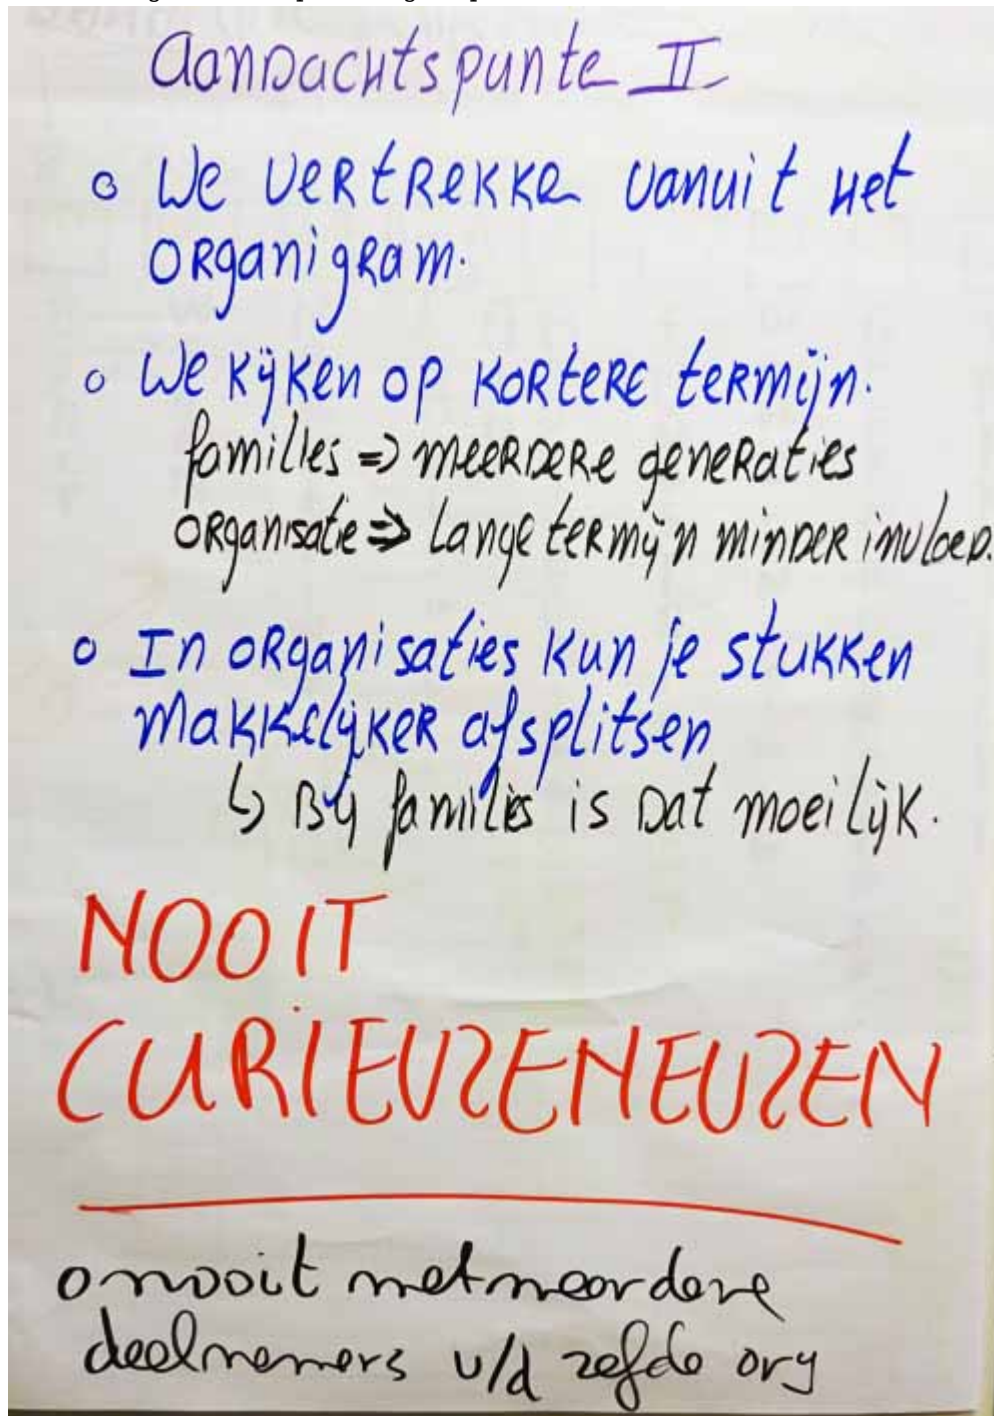 Aandachtspunte II
o We vertrekke vanuit het
organigram.
o We kijken op kortere termijn.
families => meerdere generaties
organisatie => Lange termijn minder invloed.
o In organisaties kun je stukken
makkelijker afsplitsen
↳ Bij families is dat moeilijk.
NOOIT
CURIEUZENEUZEN
o nooit met meerdere
deelnemers v/d zefde org